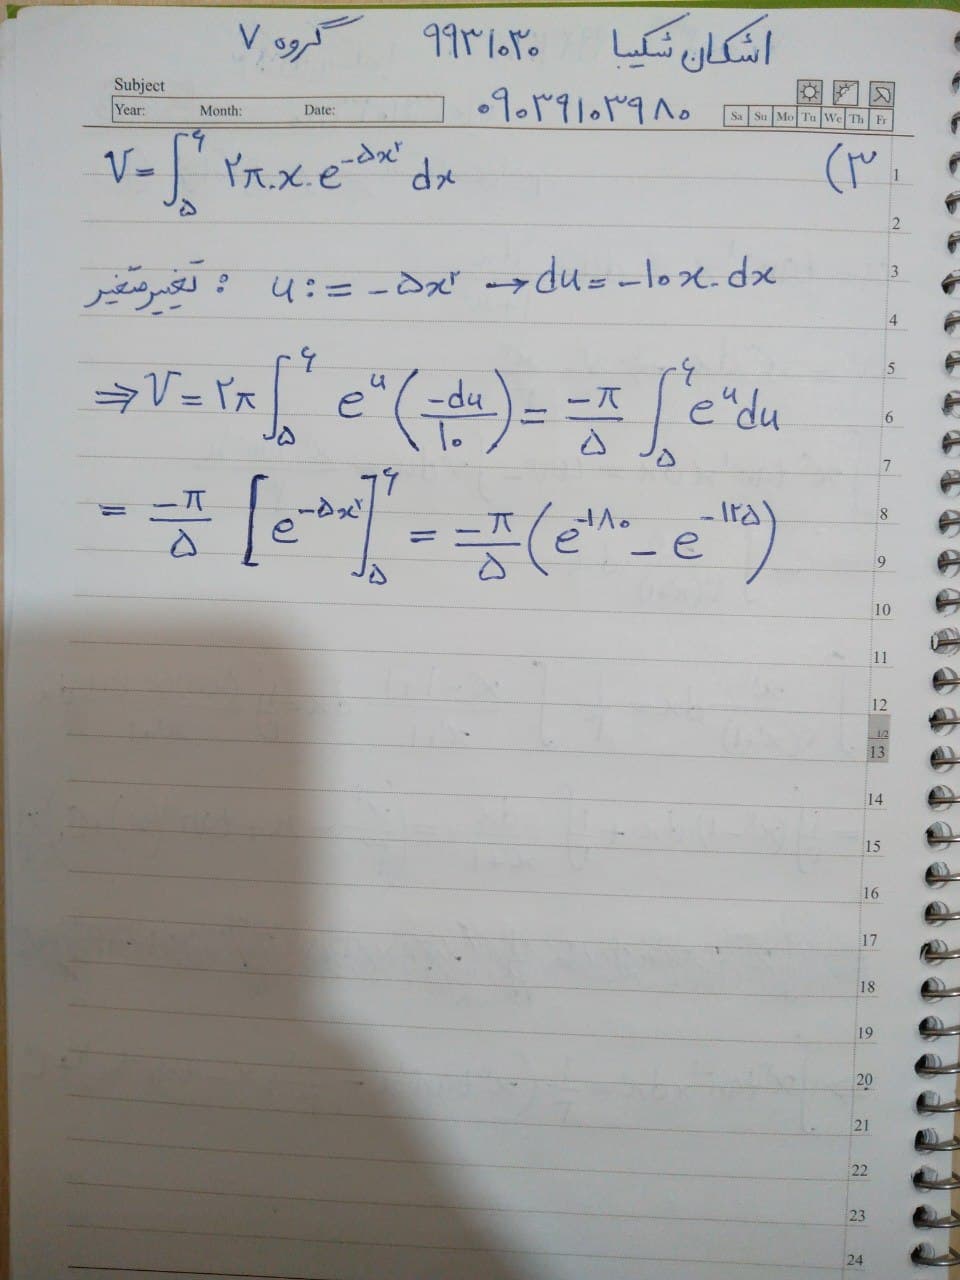 اشکان شکیبا ۹۹۳۱۰۳۰ گروه ۷
Subject
Year: Month: Date:
۰۹۰۳۹۱۰۳۹۸۰
Sa Su Mo Tu We Th Fr
۳)
V = ∫_۵^۶ ۲π.x.e^{-۵x^۲} dx
تغییر متغیر : u := -۵x^۲ → du = -۱۰x.dx
⇒ V = ۲π ∫_۵^۶ e^u (-du/۱۰) = -π/۵ ∫_۵^۶ e^u du
= -π/۵ [e^{-۵x^۲}]_۵^۶ = -π/۵ (e^{-۱۸۰} - e^{-۱۲۵})
1
2
3
4
5
6
7
8
9
10
11
12
1/2
13
14
15
16
17
18
19
20
21
22
23
24